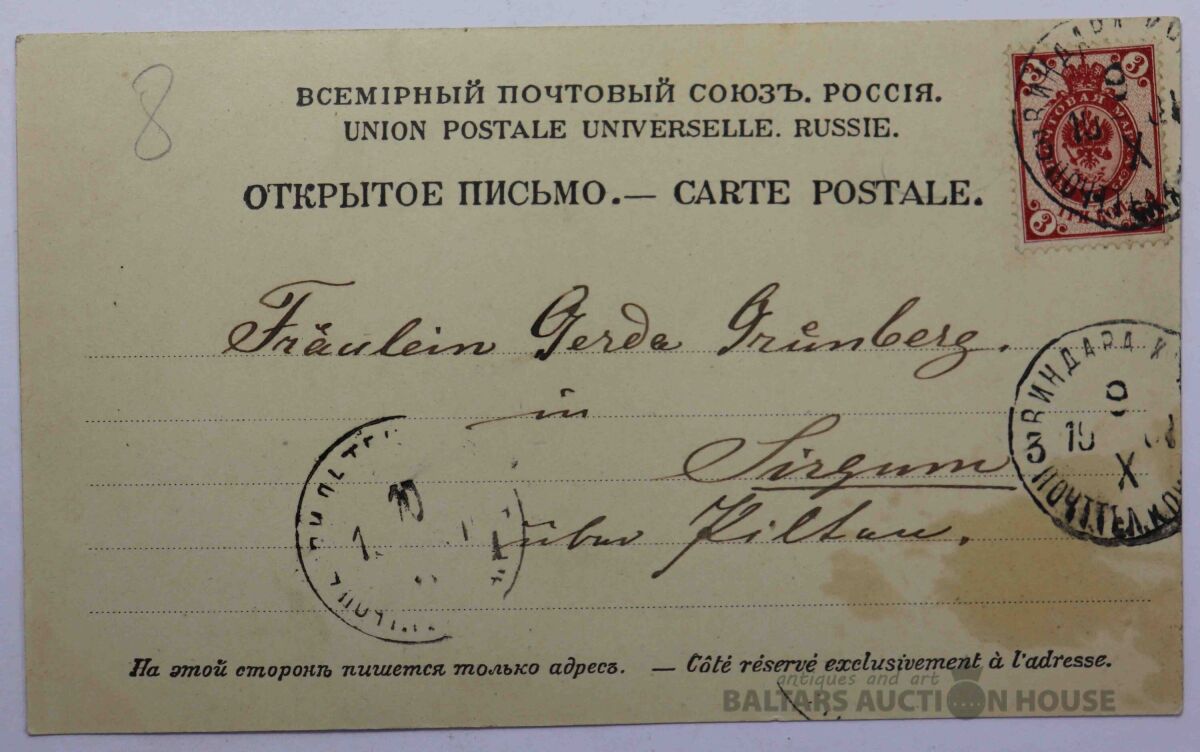 8
ВСЕМІРНЫЙ ПОЧТОВЫЙ СОЮЗЪ. РОССІЯ.
UNION POSTALE UNIVERSELLE. RUSSIE.
ОТКРЫТОЕ ПИСЬМО.— CARTE POSTALE.
3 3
ПОЧТОВАЯ МАРКА
3
Fräulein Gerda Grünberg.
in
Sirgum
über Piltau.
ВИНДАВА
9
3 19
X
10
На этой сторонѣ пишется только адресъ. — Côté réservé exclusivement à l'adresse.
antiques and art
BALTARS AUCTION HOUSE